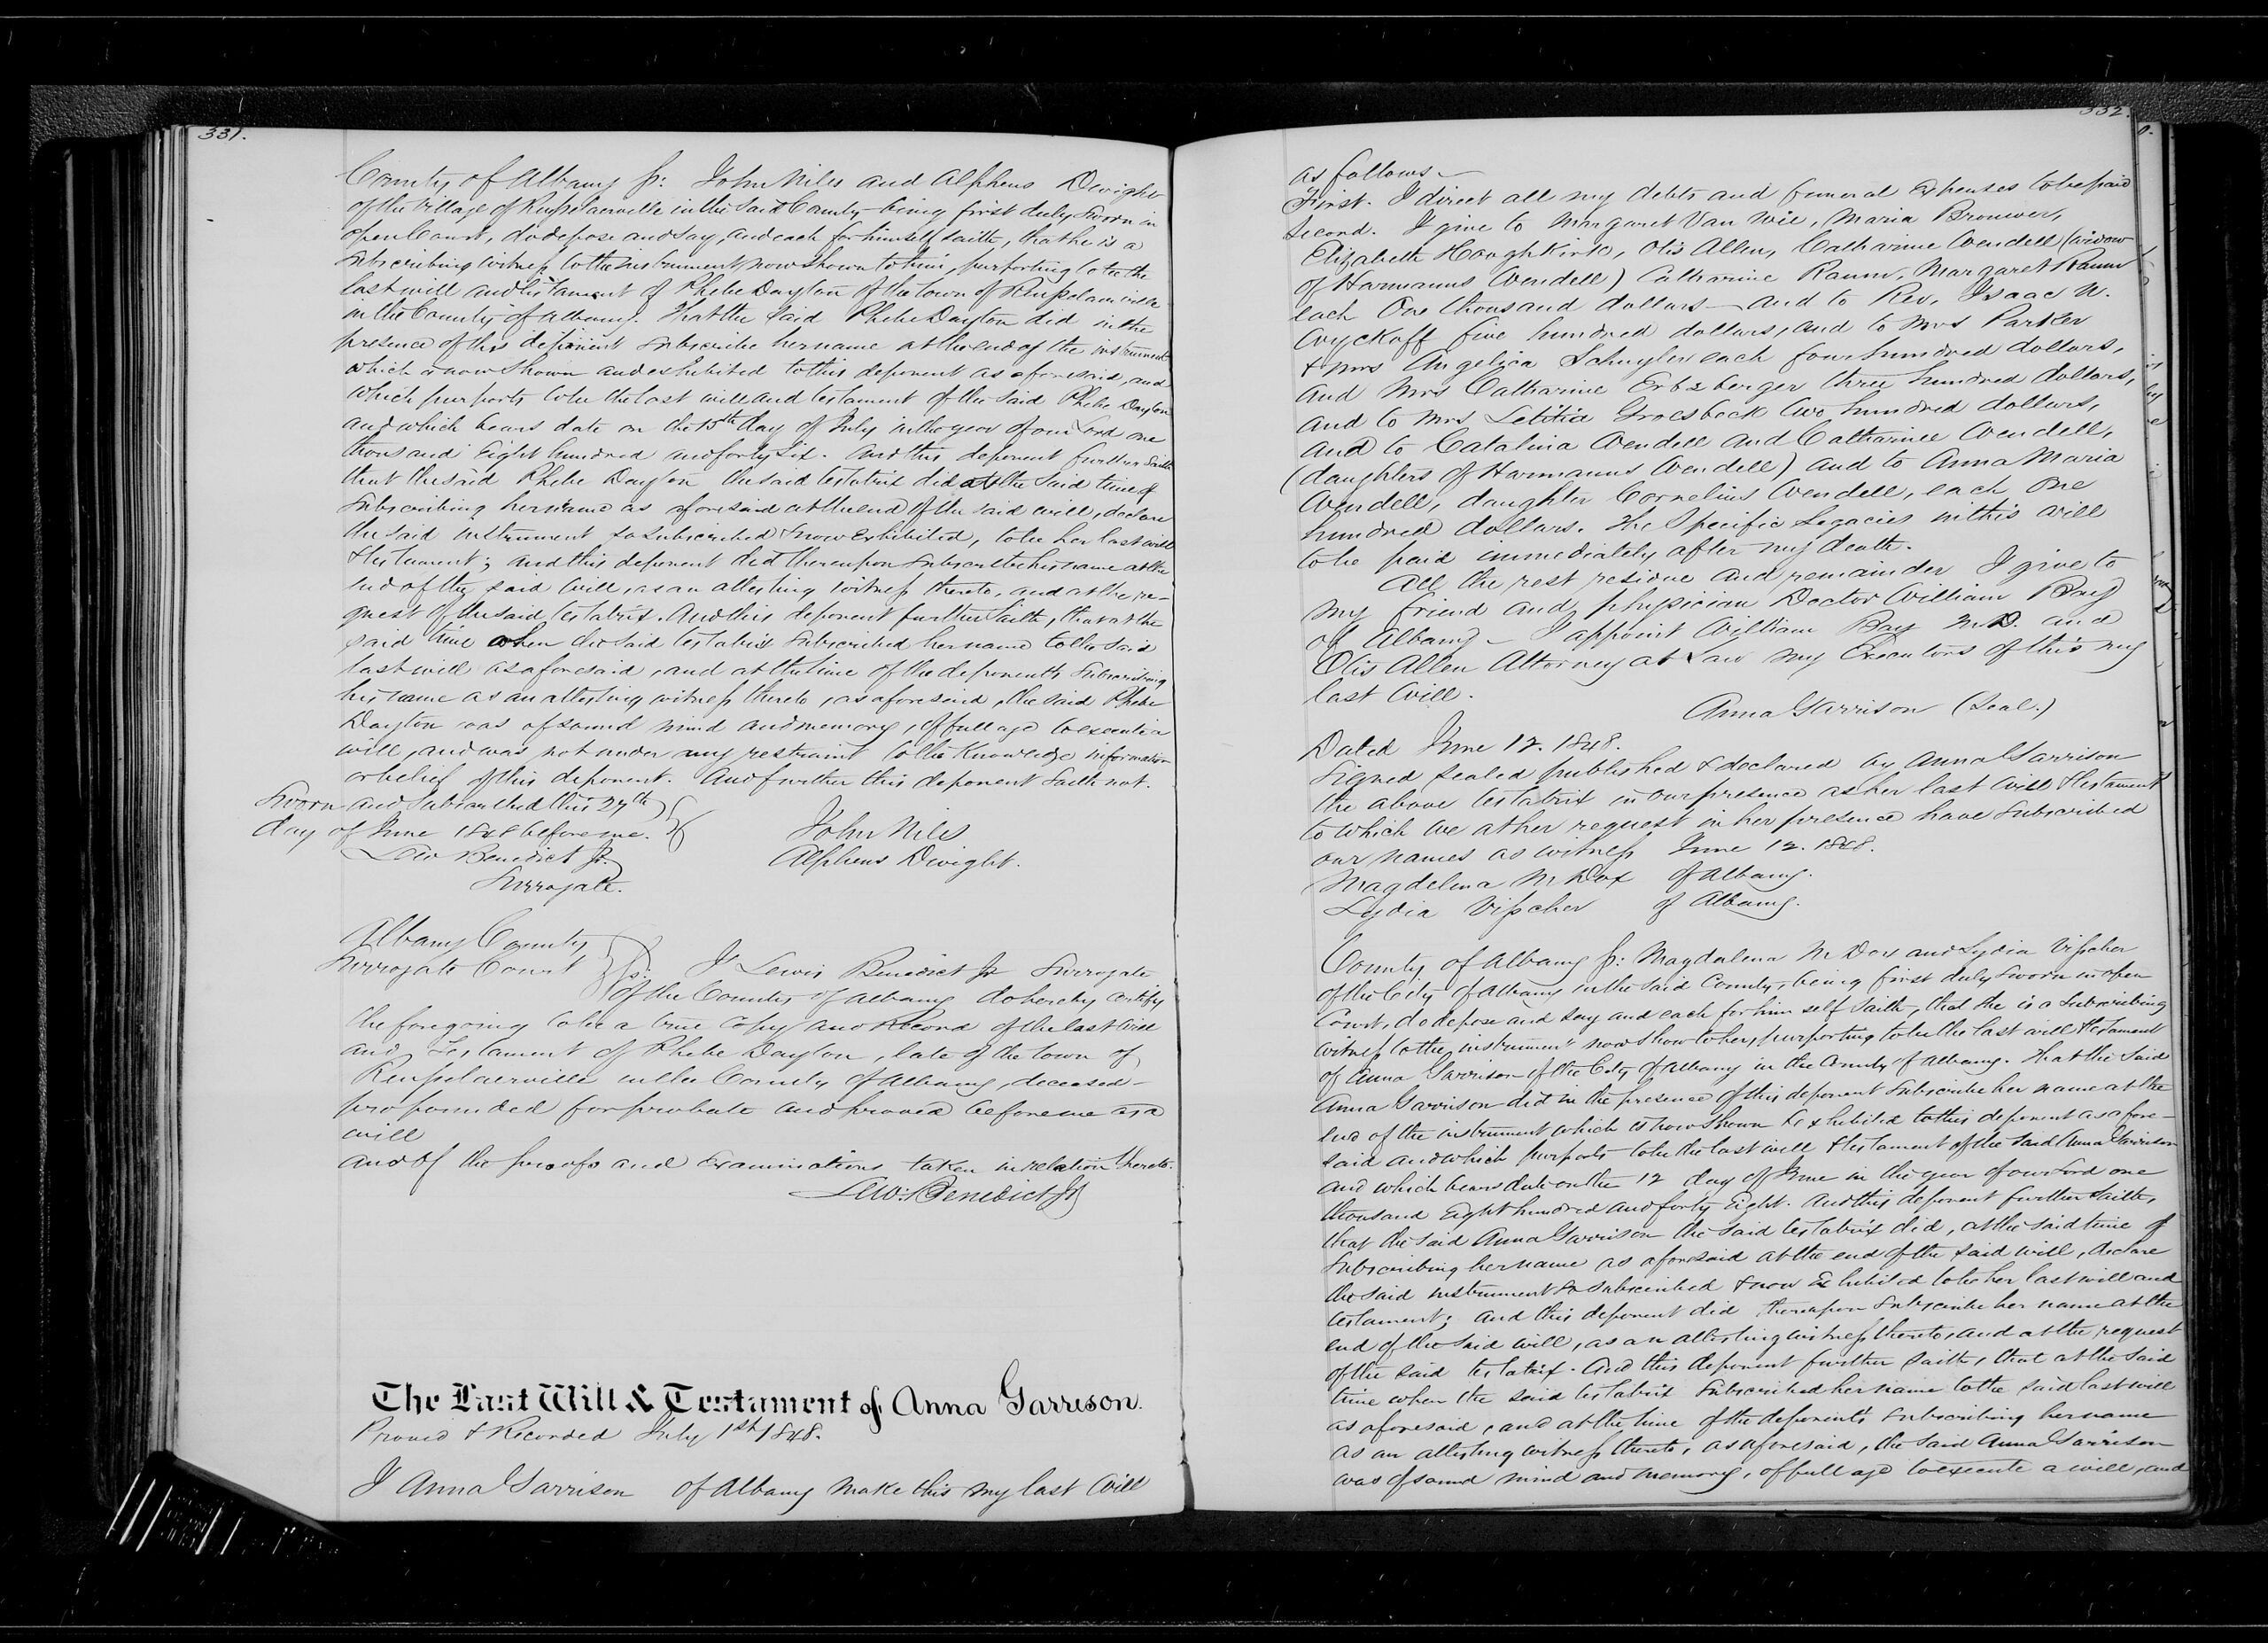 331.
County of Albany ss: John Niles and Alpheus Dwight
of the Village of Rensselaerville in the said County being first duly sworn in
open Court, do depose and say, and each for himself saith, that he is a
subscribing witness to the instrument now shown to him, purporting to be the
last will and testament of Phebe Dayton of the town of Rensselaerville
in the County of Albany. That the said Phebe Dayton did in the
presence of this deponent subscribe her name at the end of the instrument
which is now shown and exhibited to this deponent as aforesaid, and
which purports to be the last will and testament of the said Phebe Dayton
and which bears date on the 15th day of July in the year of our Lord one
thousand eight hundred and forty six. And this deponent further saith
that the said Phebe Dayton the said testatrix did at the said time of
subscribing her name as aforesaid at the end of the said will, declare
the said instrument so subscribed & now exhibited, to be her last will
& testament; and this deponent did thereupon subscribe his name at the
end of the said will, as an attesting witness thereto, and at the re-
quest of the said testatrix. And this deponent further saith, that at the
said time when the said testatrix subscribed her name to the said
last will as aforesaid, and at the time of the deponents subscribing
his name as an attesting witness thereto, as aforesaid, the said Phebe
Dayton was of sound mind and memory, of full age to execute a
will, and was not under any restraint to the knowledge information
or belief of this deponent. And further this deponent saith not.
Sworn and subscribed this 27th
day of June 1848 before me.
John Niles
Lew Benedict Jr.
Alpheus Dwight.
Surrogate.
Albany County
Surrogate Court ss: I Lewis Benedict Jr Surrogate
of the County of Albany do hereby certify
the foregoing to be a true copy and Record of the last will
and Testament of Phebe Dayton, late of the town of
Rensselaerville in the County of Albany, deceased-
propounded for probate and proved before me as a
will
and of the proofs and Examinations taken in relation thereto.
Lew: Benedict Jr
The Last Will & Testament of Anna Garrison.
Proved & Recorded July 1st 1848.
I Anna Garrison of Albany make this my last Will
332.
as follows -
First. I direct all my debts and funeral expenses to be paid
Second. I give to Margaret Van Wie, Maria Brouwer,
Elizabeth Hoaghkirk, Otis Allen, Catharine Wendell (widow
of Harmanus Wendell) Catharine Raum, Margaret Raum
each One thousand dollars - and to Rev. Isaac N.
Wyckoff five hundred dollars, and to Mrs Parker
& Mrs Angelica Schuyler each four hundred dollars,
and Mrs Catharine Ertzberger three hundred dollars,
and to Mrs Letitia Groesbeck two hundred dollars,
and to Catalina Wendell and Catharine Wendell,
(daughters of Harmanus Wendell) and to Anna Maria
Wendell, daughter Cornelius Wendell, each one
hundred dollars. The Specific Legacies in this will
to be paid immediately after my death.
All the rest residue and remainder I give to
my friend and physician Doctor William Bay
of Albany - I appoint William Bay M.D. and
Otis Allen Attorney at Law my Executors of this my
last Will.
Anna Garrison (Seal.)
Dated June 12. 1848.
Signed sealed published & declared by Anna Garrison
the above testatrix in our presence as her last will & testament
to which we at her request in her presence have subscribed
our names as witness June 12. 1848.
Magdelena M Dox of Albany.
Lydia Visscher of Albany.
County of Albany ss: Magdalena M Dox and Lydia Visscher
of the City of Albany in the said County, being first duly sworn in open
Court, do depose and say and each for him self saith, that she is a subscribing
witness to the instrument now show to her, purporting to be the last will & testament
of Anna Garrison of the City of Albany in the County of Albany. That the said
Anna Garrison did in the presence of this deponent subscribe her name at the
end of the instrument which is now shown & exhibited to this deponent as afore-
said and which purports to be the last will & testament of the said Anna Garrison
and which bears date on the 12 day of June in the year of our Lord one
thousand eight hundred and forty eight. And this deponent further saith,
that the said Anna Garrison the said testatrix did, at the said time of
subscribing her name as aforesaid at the end of the said will, declare
the said instrument so subscribed & now exhibited to be her last will and
testament; and this deponent did thereupon subscribe her name at the
end of the said will, as an attesting witness thereto, and at the request
of the said testatrix. And this deponent further saith, that at the said
time when the said testatrix subscribed her name to the said last will
as aforesaid, and at the time of the deponents subscribing her name
as an attesting witness thereto, as aforesaid, the said Anna Garrison
was of sound mind and memory, of full age to execute a will, and